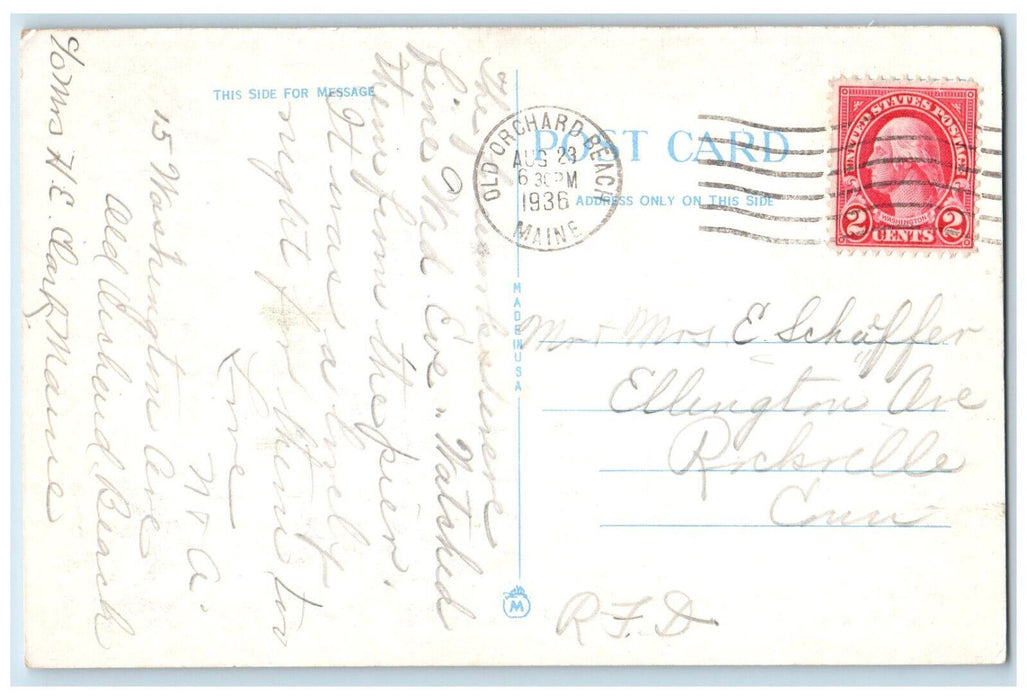 THIS SIDE FOR MESSAGE
POST CARD
ADDRESS ONLY ON THIS SIDE
OLD ORCHARD BEACH
AUG 23
6 30 PM
1936
MAINE
UNITED STATES POSTAGE
WASHINGTON
2 CENTS 2
MADE IN USA
M
The were here
Wed. Eve. Watched
them from the pier.
It was a lovely
night for them too
Love
N + A.
15 Washington Ave
Old Orchard Beach
Maine
c/o Mrs H. E. Clark
Mr + Mrs E Schäffer
Ellington Ave
Rockville
Conn
R.F.D